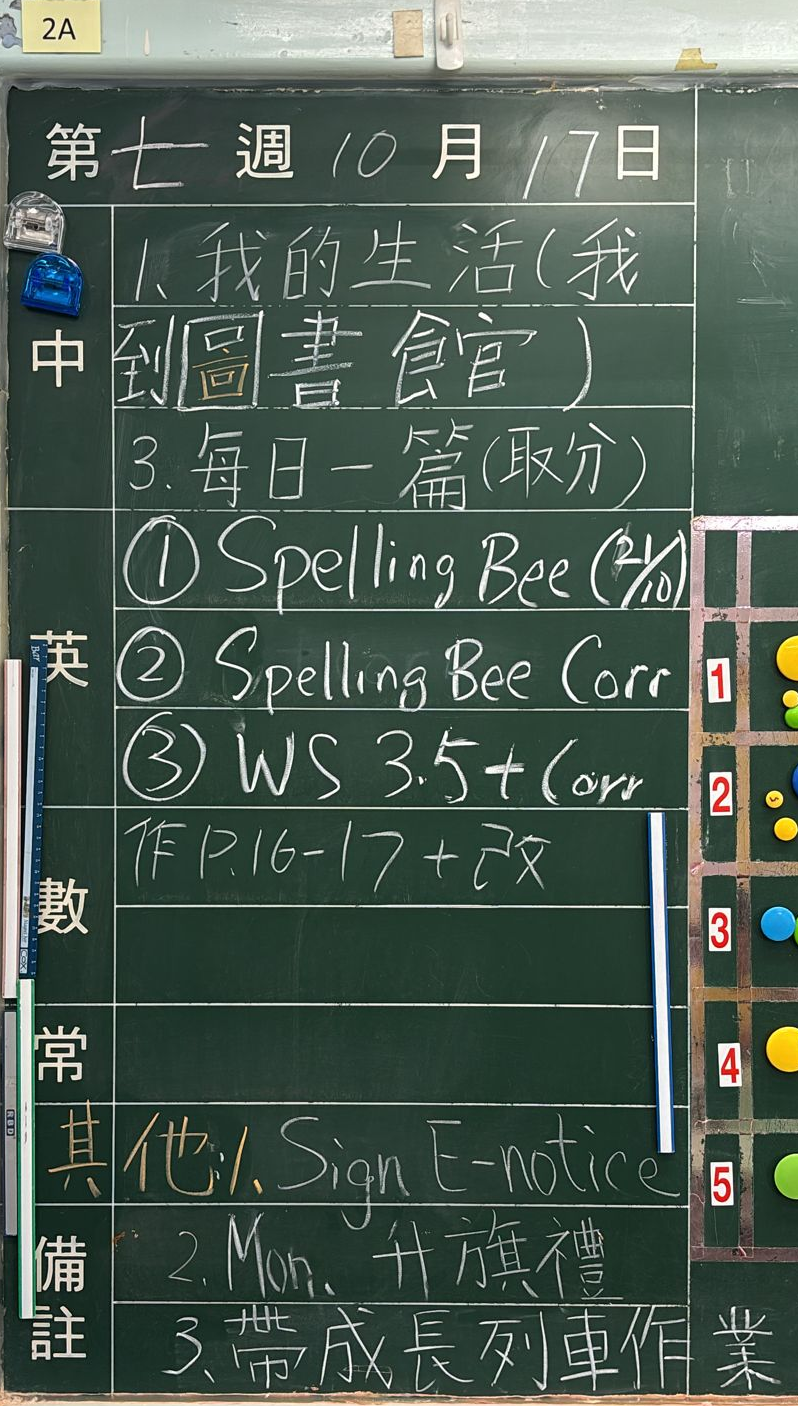 2A
第七週10月17日
中
1. 我的生活(我
到圖書館)
3. 每日一篇(取分)
英
① Spelling Bee (21/10)
② Spelling Bee Corr
③ WS 3.5 + Corr
數
作P.16-17 + 改
常
其他: 1. Sign E-notice
備註
2. Mon. 升旗禮
3. 帶成長列車作業
1
2
3
4
5